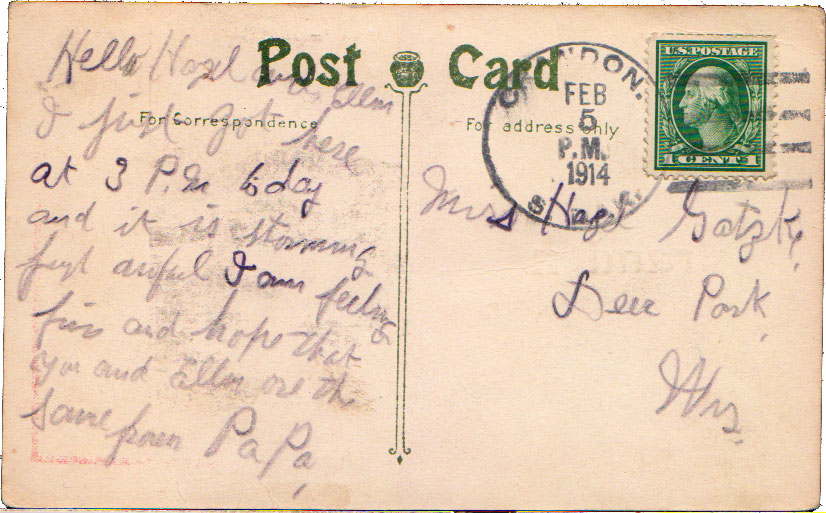 Post Card
For Correspondence
For address only
U.S. POSTAGE
1 CENT 1
FEB
5
P.M.
1914
Hello Hazel and Ellen
I just got here
at 3 P.M. to day
and it is storming
just awful I am feeling
fine and hope that
you and Ellen are the
same from PaPa,
Mrs Hazel Gatzke,
Deer Park,
Wis.